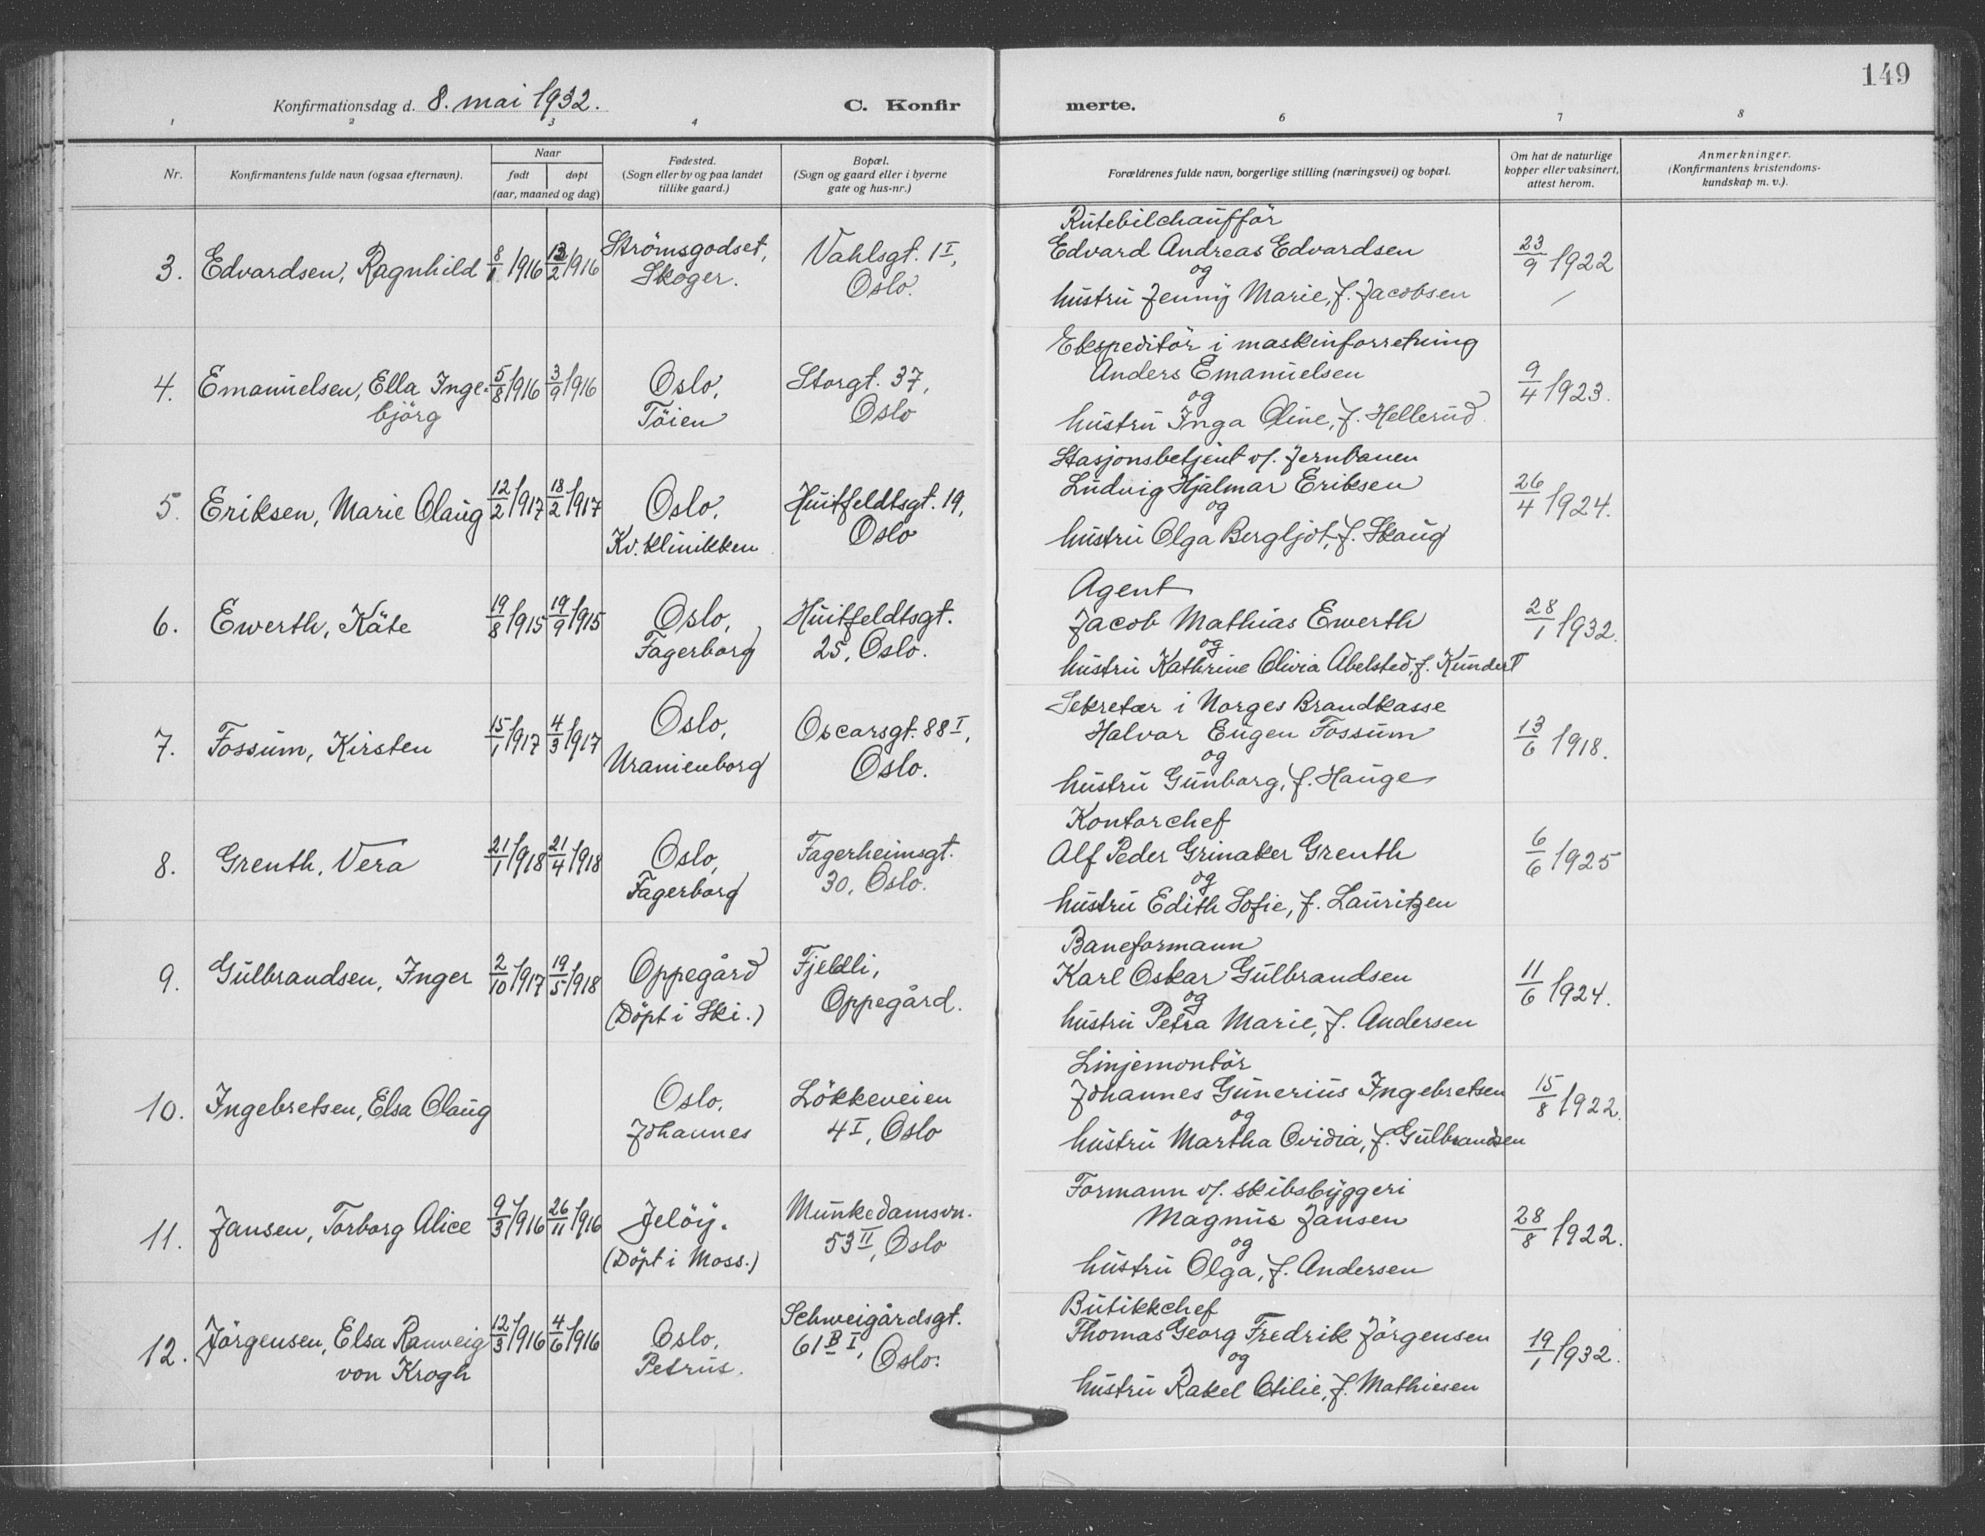 149
Konfirmationsdag d. 8. mai 1932.
C. Konfirmerte.
1 2 3 4 6 7 8
Nr.
Konfirmantens fulde navn (ogsaa efternavn).
Naar
født døpt
(aar, maaned og dag)
Fødested.
(Sogn eller by og paa landet
tillike gaard.)
Bopæl.
(Sogn og gaard eller i byerne
gate og hus-nr.)
Forældrenes fulde navn, borgerlige stilling (næringsvei) og bopæl.
Om hat de naturlige
kopper eller vaksinert,
attest herom.
Anmerkninger.
(Konfirmantens kristendoms-
kundskap m. v.).
3. Edvardsen, Ragnhild
8/1 1916 13/2 1916
Strömsgodset,
Skoger.
Vahlsgt. 1 I,
Oslo.
Rutebilchaufför
Edvard Andreas Edvardsen
og
hustru Jenny Marie, f. Jacobsen
23/9 1922
4. Emanuelsen, Ella Inge-
björg
5/8 1916 3/9 1916
Oslo,
Töien
Storgt. 37,
Oslo
Ekspeditör i maskinforretning
Anders Emanuelsen
og
hustru Inga Oline, f. Hellerud
9/4 1923.
5. Eriksen, Marie Olaug
12/2 1917 18/2 1917
Oslo,
Kv. klinikken
Huitfeldtsgt. 19,
Oslo
Stasjonsbetjent v/. Jernbanen
Ludvig Hjalmar Eriksen
og
hustru Olga Bergljot, f. Skaug
26/4 1924.
6. Ewerth, Käte
19/8 1915 19/9 1915
Oslo,
Fagerborg
Huitfeldtsgt.
25, Oslo.
Agent
Jacob Mathias Ewerth
og
hustru Kathrine Olivia Abelsted, f. Kundert
28/1 1932.
7. Fossum, Kirsten
15/1 1917 4/3 1917
Oslo,
Uranienborg
Oscarsgt. 88 I,
Oslo.
Sekretær i Norges Brandkasse
Halvor Eugen Fossum
og
hustru Gunborg, f. Hauge
13/6 1918.
8. Grenth, Vera
21/1 1918 21/4 1918
Oslo,
Fagerborg
Fagerheimsgt.
30, Oslo.
Kontorchef
Alf Peder Grinaker Grenth
og
hustru Edith Sofie, f. Lauritzen
6/6 1925
9. Gulbrandsen, Inger
2/10 1917 19/5 1918
Oppegård
(Döpt i Ski.)
Fjeldli,
Oppegård.
Baneformann
Karl Oskar Gulbrandsen
og
hustru Petra Marie, f. Andersen
11/6 1924.
10. Ingebretsen, Elsa Olaug
Oslo,
Johannes
Lökkeveien
4 I, Oslo
Linjemontör
Johannes Gunerius Ingebretsen
og
hustru Martha Ovidia, f. Gulbrandsen
15/8 1922.
11. Jansen, Torborg Alice
9/3 1916 26/11 1916
Jelöy.
(Döpt i Moss.)
Munkedamsvn.
53 II, Oslo
Formann v/. skibsbyggeri
Magnus Jansen
og
hustru Olga, f. Andersen
28/8 1922.
12. Jörgensen, Elsa Ranveig
von Krogh
12/3 1916 4/6 1916
Oslo,
Petrus.
Schweigårdsgt.
61 B I, Oslo.
Butikkchef
Thomas Georg Fredrik Jörgensen
og
hustru Rakel Otilie, f. Mathiesen
19/1 1932.